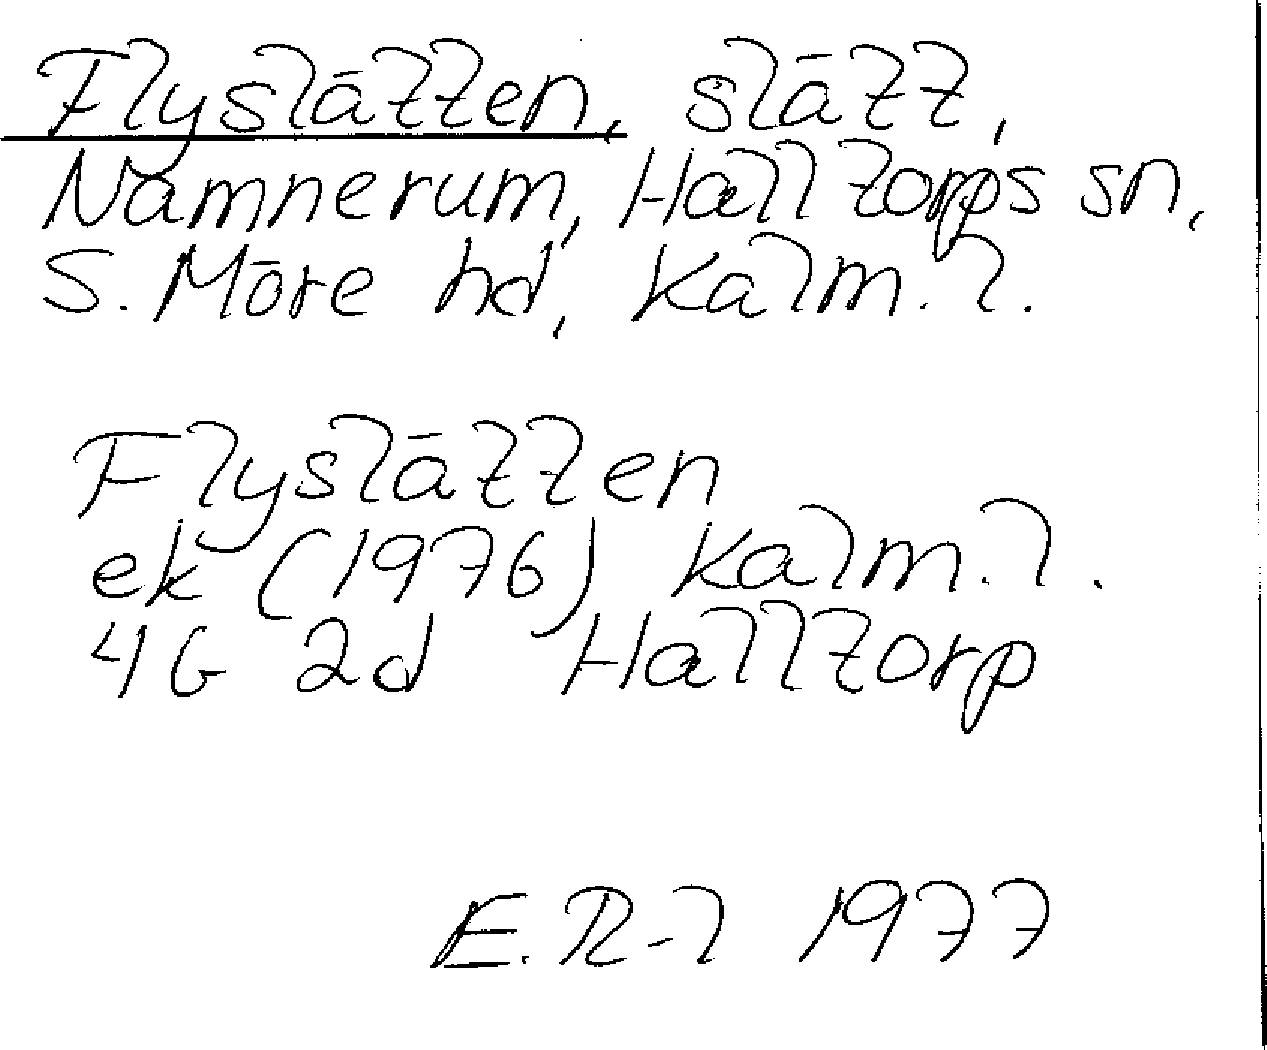 Flyslätten, slätt,
Namnerum, Halltorps sn,
S. Möre hd, Kalm. l.
Flyslätten
ek (1976) Kalm. l.
4G 2d Halltorp
E. R-l 1977